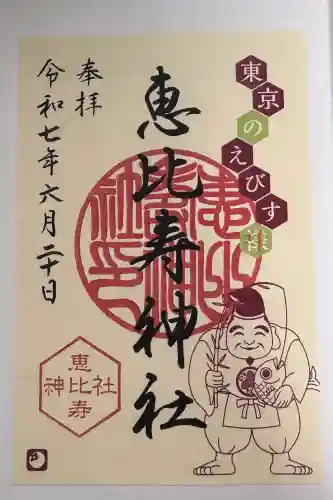 東京のえびす様
奉拝
恵比寿神社
令和七年六月二十日
恵比寿神社
恵比寿神社